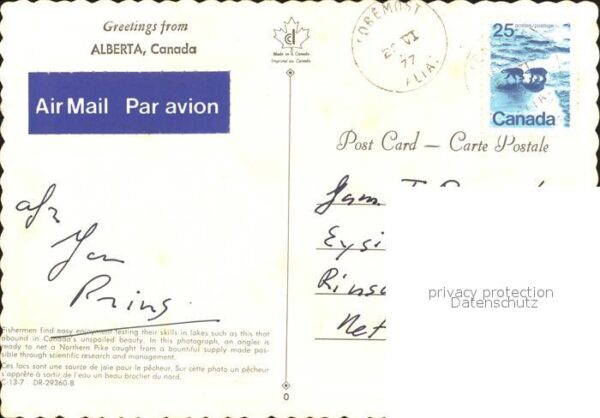 Greetings from
ALBERTA, Canada
Air Mail Par avion
afz
Jan
Prins
Fishermen find easy enjoyment testing their skills in lakes such as this that
abound in Canada's unspoiled beauty. In this photograph, an angler is
ready to net a Northern Pike caught from a bountiful supply made pos-
sible through scientific research and management.
Ces lacs sont une source de joie pour le pêcheur. Sur cette photo un pêcheur
s'apprête à sortir de l'eau un beau brochet du nord.
C-13-7 DR-29360-B
Made in Canada
Imprimé au Canada
FOREMOST
VI
77
ALTA.
25
postes/postage
Canada
Post Card — Carte Postale
Fam
Eysi
Rins
Net
privacy protection
Datenschutz